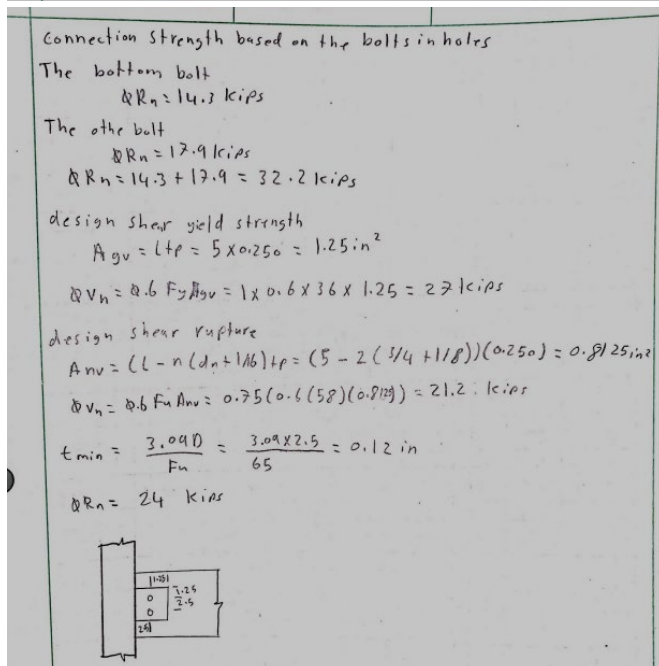 Connection strength based on the bolts in holes
The bottom bolt
ØRn = 14.3 kips
The othe bolt
ØRn = 17.9 kips
ØRn = 14.3 + 17.9 = 32.2 kips
design shear yield strength
Agv = Ltp = 5 x 0.250 = 1.25 in²
ØVn = 0.6 Fy Agv = 1 x 0.6 x 36 x 1.25 = 27 kips
design shear rupture
Anv = (L - n(dn + 1/16)tp = (5 - 2(3/4 + 1/8))(0.250) = 0.8125 in²
ØVn = 0.6 Fu Anv = 0.75(0.6(58)(0.8125)) = 21.2 kips
tmin = 3.09D / Fu = 3.09 x 2.5 / 65 = 0.12 in
ØRn = 24 kips
1.25
2.5